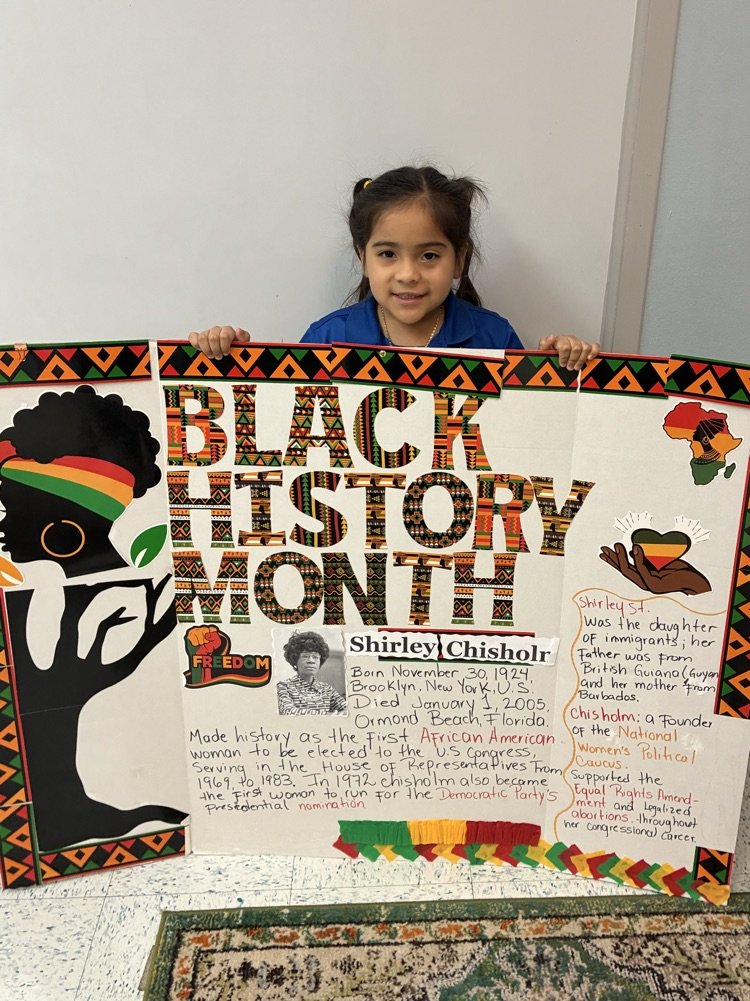 BLACK
HISTORY
MONTH
FREEDOM
Shirley Chisholr
Born November 30, 1924.
Brooklyn, New York, U.S.
Died January 1, 2005.
Ormond Beach, Florida.
Made history as the first African American
woman to be elected to the U.S Congress,
Serving in the House of Representatives From
1969, to 1983. In 1972 chisholm also became
the First woman to run for the Democratic Party's
Presidential nomination
Shirley St.
Was the daughter
of immigrants; her
Father was from
British Guiana (Guyan
and her mother from
Barbados.
Chisholm: a Founder
of the National
Women's Political
Caucus.
Supported the
Equal Rights Amend-
ment and legalized
abortions. throughout
her congressional career.